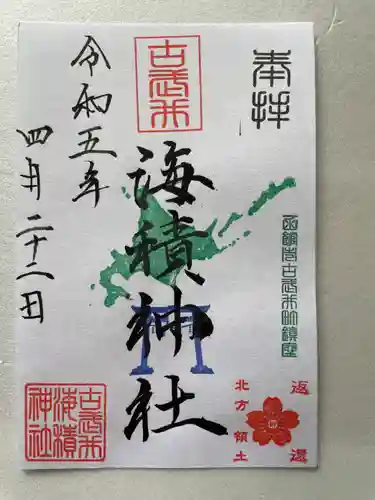 奉拝
函館市古武井町鎮座
返還
北方領土
古武井
海積神社
令和五年
四月二十二日
古武井
海積
神社